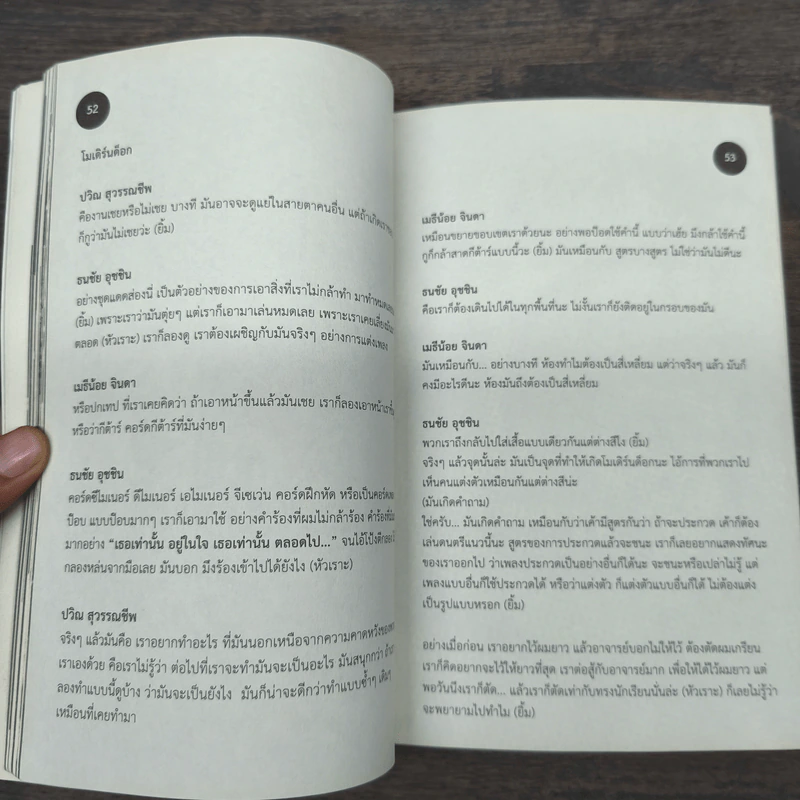 52
โมเดิร์นด็อก
ปวิณ สุวรรณชีพ
คืองานเชยหรือไม่เชย บางที มันอาจจะดูแย่ในสายตาคนอื่น แต่ถ้าเกิดเรา
ก็กูว่ามันไม่เชยว่ะ (ยิ้ม)
ธนชัย อุชชิน
อย่างชุดแดดส่องนี่ เป็นตัวอย่างของการเอาสิ่งที่เราไม่กล้าทำ มาทำหมด
(ยิ้ม) เพราะเราว่ามันตุ่ยๆ แต่เราก็เอามาเล่นหมดเลย เพราะเราเคยเลี่ยงมัน
ตลอด (หัวเราะ) เราก็ลองดู เราต้องเผชิญกับมันจริงๆ อย่างการแต่งเพลง
เมธีน้อย จินดา
หรือปกเทป ที่เราเคยคิดว่า ถ้าเอาหน้าขึ้นแล้วมันเชย เราก็ลองเอาหน้าเรา
หรือว่ากีต้าร์ คอร์ดกีต้าร์ที่มันง่ายๆ
ธนชัย อุชชิน
คอร์ดซีไมเนอร์ ดีไมเนอร์ เอไมเนอร์ จีเซเว่น คอร์ดฝึกหัด หรือเป็นคอร์ด
ป๊อบ แบบป๊อบมากๆ เราก็เอามาใช้ อย่างคำร้องที่ผมไม่กล้าร้อง คำร้องที่
มากอย่าง “เธอเท่านั้น อยู่ในใจ เธอเท่านั้น ตลอดไป...” จนไอ้โป้งตีกลอง
กลองหล่นจากมือเลย มันบอก มึงร้องเข้าไปได้ยังไง (หัวเราะ)
ปวิณ สุวรรณชีพ
จริงๆ แล้วมันคือ เราอยากทำอะไร ที่มันนอกเหนือจากความคาดหวังของ
เราเองด้วย คือเราไม่รู้ว่า ต่อไปที่เราจะทำมันจะเป็นอะไร มันสนุกกว่า ถ้า
ลองทำแบบนี้ดูบ้าง ว่ามันจะเป็นยังไง มันก็น่าจะดีกว่าทำแบบซ้ำๆ เดิมๆ
เหมือนที่เคยทำมา
53
เมธีน้อย จินดา
เหมือนขยายขอบเขตเราด้วยนะ อย่างพอป๊อดใช้คำนี้ แบบว่าเฮ้ย มึงกล้าใช้คำนี้
กูก็กล้าสาดกีต้าร์แบบนี้วะ (ยิ้ม) มันเหมือนกับ สูตรบางสูตร ไม่ใช่ว่ามันไม่ดีนะ
ธนชัย อุชชิน
คือเราก็ต้องเดินไปได้ในทุกพื้นที่นะ ไม่งั้นเราก็ยังติดอยู่ในกรอบของมัน
เมธีน้อย จินดา
มันเหมือนกับ... อย่างบางที ห้องทำไมต้องเป็นสี่เหลี่ยม แต่ว่าจริงๆ แล้ว มันก็
คงมีอะไรดีนะ ห้องมันถึงต้องเป็นสี่เหลี่ยม
ธนชัย อุชชิน
พวกเราถึงกลับไปใส่เสื้อแบบเดียวกันแต่ต่างสีไง (ยิ้ม)
จริงๆ แล้วจุดนั้นล่ะ มันเป็นจุดที่ทำให้เกิดโมเดิร์นด็อกนะ ไอ้การที่พวกเราไป
เห็นคนแต่งตัวเหมือนกันแต่ต่างสีน่ะ
(มันเกิดคำถาม)
ใช่ครับ... มันเกิดคำถาม เหมือนกับว่าเค้ามีสูตรกันว่า ถ้าจะประกวด เค้าก็ต้อง
เล่นดนตรีแนวนี้นะ สูตรของการประกวดแล้วจะชนะ เราก็เลยอยากแสดงทัศนะ
ของเราออกไป ว่าเพลงประกวดเป็นอย่างอื่นก็ได้นะ จะชนะหรือเปล่าไม่รู้ แต่
เพลงแบบอื่นก็ใช้ประกวดได้ หรือว่าแต่งตัว ก็แต่งตัวแบบอื่นก็ได้ ไม่ต้องแต่ง
เป็นรูปแบบหรอก (ยิ้ม)
อย่างเมื่อก่อน เราอยากไว้ผมยาว แล้วอาจารย์บอกไม่ให้ไว้ ต้องตัดผมเกรียน
เราก็คิดอยากจะไว้ให้ยาวที่สุด เราต่อสู้กับอาจารย์มาก เพื่อให้ได้ไว้ผมยาว แต่
พอวันนึงเราก็ตัด... แล้วเราก็ตัดเท่ากับทรงนักเรียนนั่นล่ะ (หัวเราะ) ก็เลยไม่รู้ว่า
จะพยายามไปทำไม (ยิ้ม)